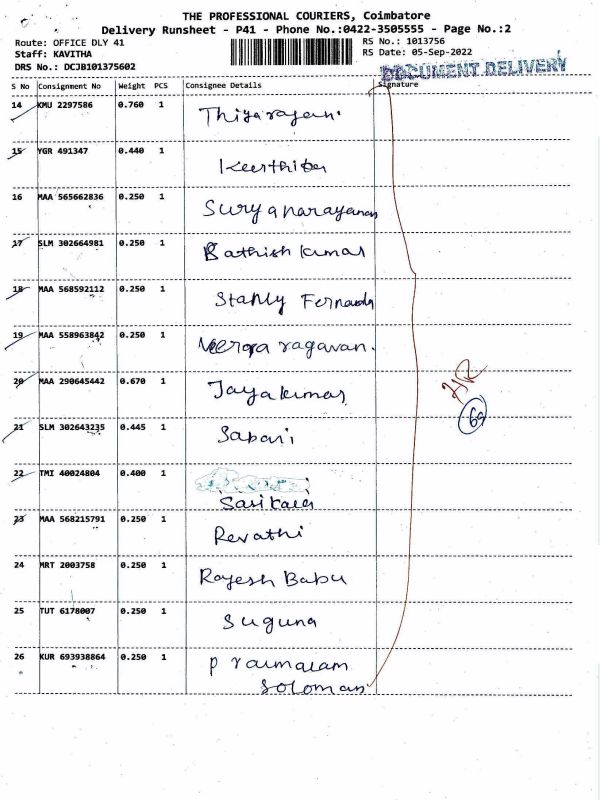 THE PROFESSIONAL COURIERS, Coimbatore
Delivery Runsheet - P41 - Phone No.:0422-3505555 - Page No.:2
Route: OFFICE DLY 41
Staff: KAVITHA
DRS No.: DCJB101375602
RS No.: 1013756
RS Date: 05-Sep-2022
DOCUMENT DELIVERY
S No Consignment No Weight PCS Consignee Details Signature
14 KMU 2297586 0.760 1 Thiyarajan.
15 YGR 491347 0.440 1 Keerthika
16 MAA 565662836 0.250 1 Suryanarayanan
17 SLM 302664981 0.250 1 Bathish kumar
18 MAA 568592112 0.250 1 Stanly Fernando
19 MAA 558963842 0.250 1 Veera ragavan.
20 MAA 290645442 0.670 1 Jayakumar
21 SLM 302643235 0.445 1 Sabari
22 TMI 40024804 0.400 1 Sasikala
23 MAA 568215791 0.250 1 Revathi
24 MRT 2003758 0.250 1 Rajesh Babu
25 TUT 6178007 0.250 1 Suguna
26 KUR 693938864 0.250 1 P
Soloman
HR
69